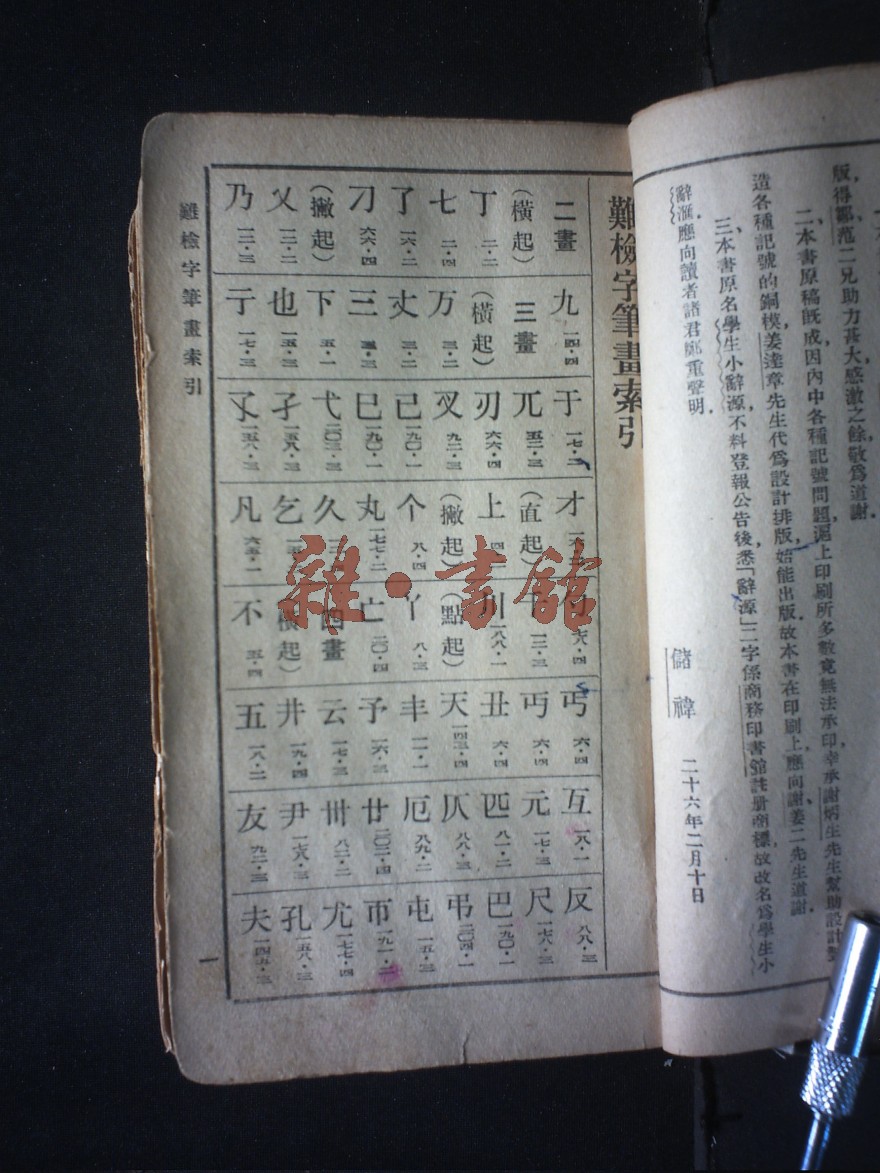 版得鄒范二兄助力甚大感激之餘敬爲道謝．
二、本書原稿既成因內中各種記號問題，滬上印刷所多數竟無法承印幸承謝炳生先生幫助設計
造各種記號的銅模姜達章先生代爲設計排版始能出版故本書在印刷上，應向謝、姜二先生道謝．
三、本書原名學生小辭源不料登報公告後悉「辭源」二字係商務印書館註册商標，故改名爲學生小
辭滙應向讀者諸君鄭重聲明．
儲禕　二十六年二月十日
難檢字筆畫索引
二畫 （橫起） 丁 二·二 七 二·四 了 一六·二 刀 六六·四 （撇起） 乂 一二·二 乃 一二·三
九 一四·四 三畫 （橫起） 万 三·二 丈 三·二 三 三·三 下 五·一 也 一五·三 亍 一七·三
于 一七·二 兀 五二·三 刃 六六·四 叉 九二·三 己 一九〇·一 巳 一九〇·一 弋 二〇三·三 孑 一五八·三 孓 一五八·三
才 （直起） 上 （撇起） 个 八·四 丸 一七七·二 久 乞 凡 六五·一
川 一八八·一 （點起） 丫 八·三 亡 二〇·四 四畫 （橫起） 不 五·四
丐 六·四 丏 六·四 丑 六·四 天 一四三·四 丰 一一·一 予 一六·三 云 一七·三 井 一九·四 五 一八·二
互 一八·一 元 一七·三 匹 八一·二 仄 八八·三 厄 八九·二 廿 二〇三·四 卅 八二·二 尹 一七六·三 友 九二·三
反 八八·三 尺 一七六·三 巴 一九〇·一 弔 二〇四·一 屯 一五·三 巿 一九一·二 尤 一七七·四 孔 一五八·三 夫 一四五·三
難檢字筆畫索引
一
雜·書館